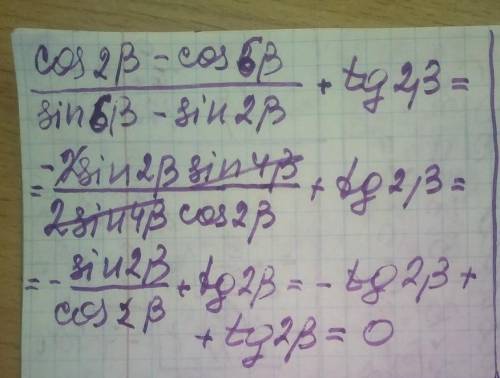 cos2β - cos6β / sin6β - sin2β + tg2β =
= -2sin2β sin4β / 2sin4β cos2β + tg2β =
= - sin2β / cos2β + tg2β = - tg2β +
+ tg2β = 0